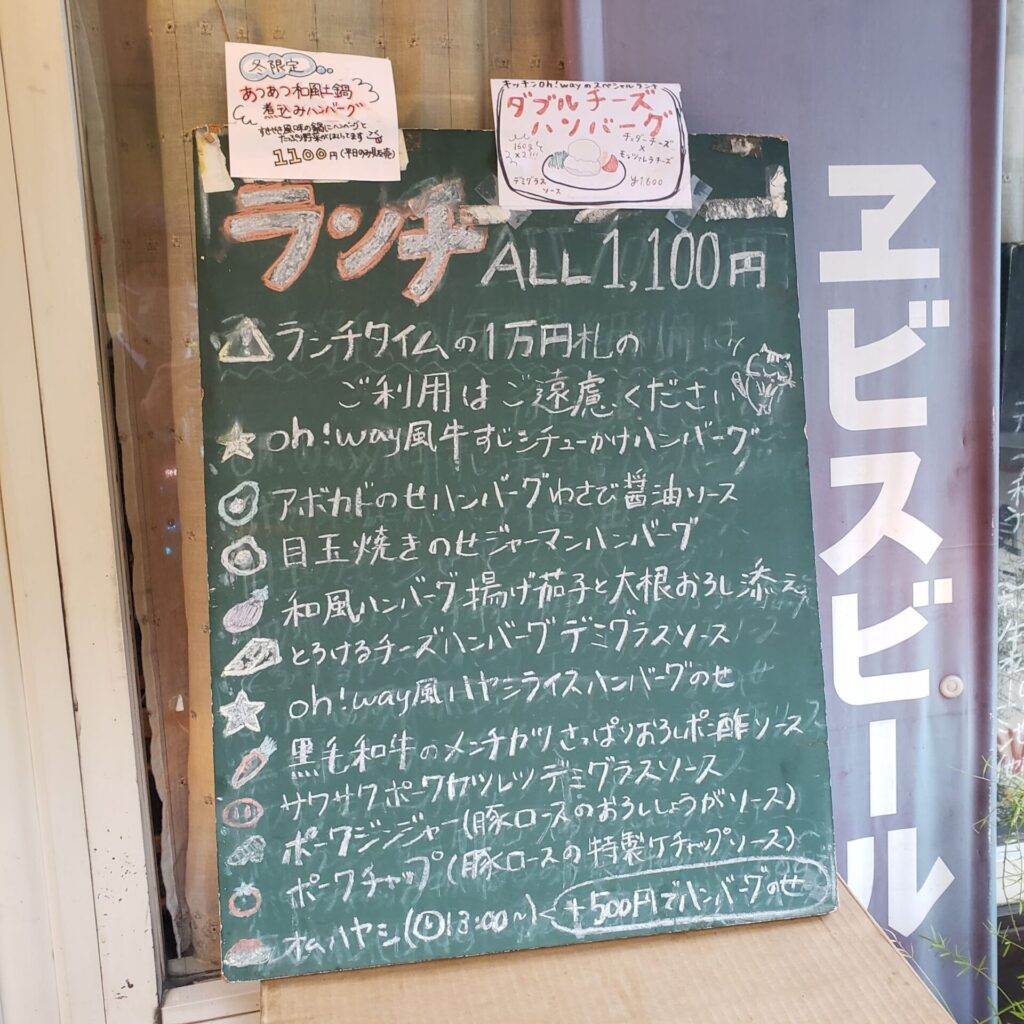 冬限定
あつあつ和風土鍋
煮込みハンバーグ
すきやき風味の鍋にハンバーグと
たっぷり野菜がはいってます
1100円(平日のみ販売)
キッチンoh!wayのスペシャルランチ
ダブルチーズ
ハンバーグ
160g
×2!!!
チェダーチーズ
×
モッツァレラチーズ
デミグラス
ソース
¥1,600
ランチ ALL 1,100円
ランチタイムの1万円札の
ご利用はご遠慮ください
oh!way風牛すじシチューかけハンバーグ
アボカドのせハンバーグわさび醤油ソース
目玉焼きのせジャーマンハンバーグ
和風ハンバーグ揚げ茄子と大根おろし添え
とろけるチーズハンバーグデミグラスソース
oh!way風ハヤシライスハンバーグのせ
黒毛和牛のメンチカツさっぱりおろしポン酢ソース
サクサクポークカツレツデミグラスソース
ポークジンジャー(豚ロースのおろししょうがソース)
ポークチャップ(豚ロースの特製ケチャップソース)
オムハヤシ(13:00~) +500円でハンバーグのせ
ヱビスビール